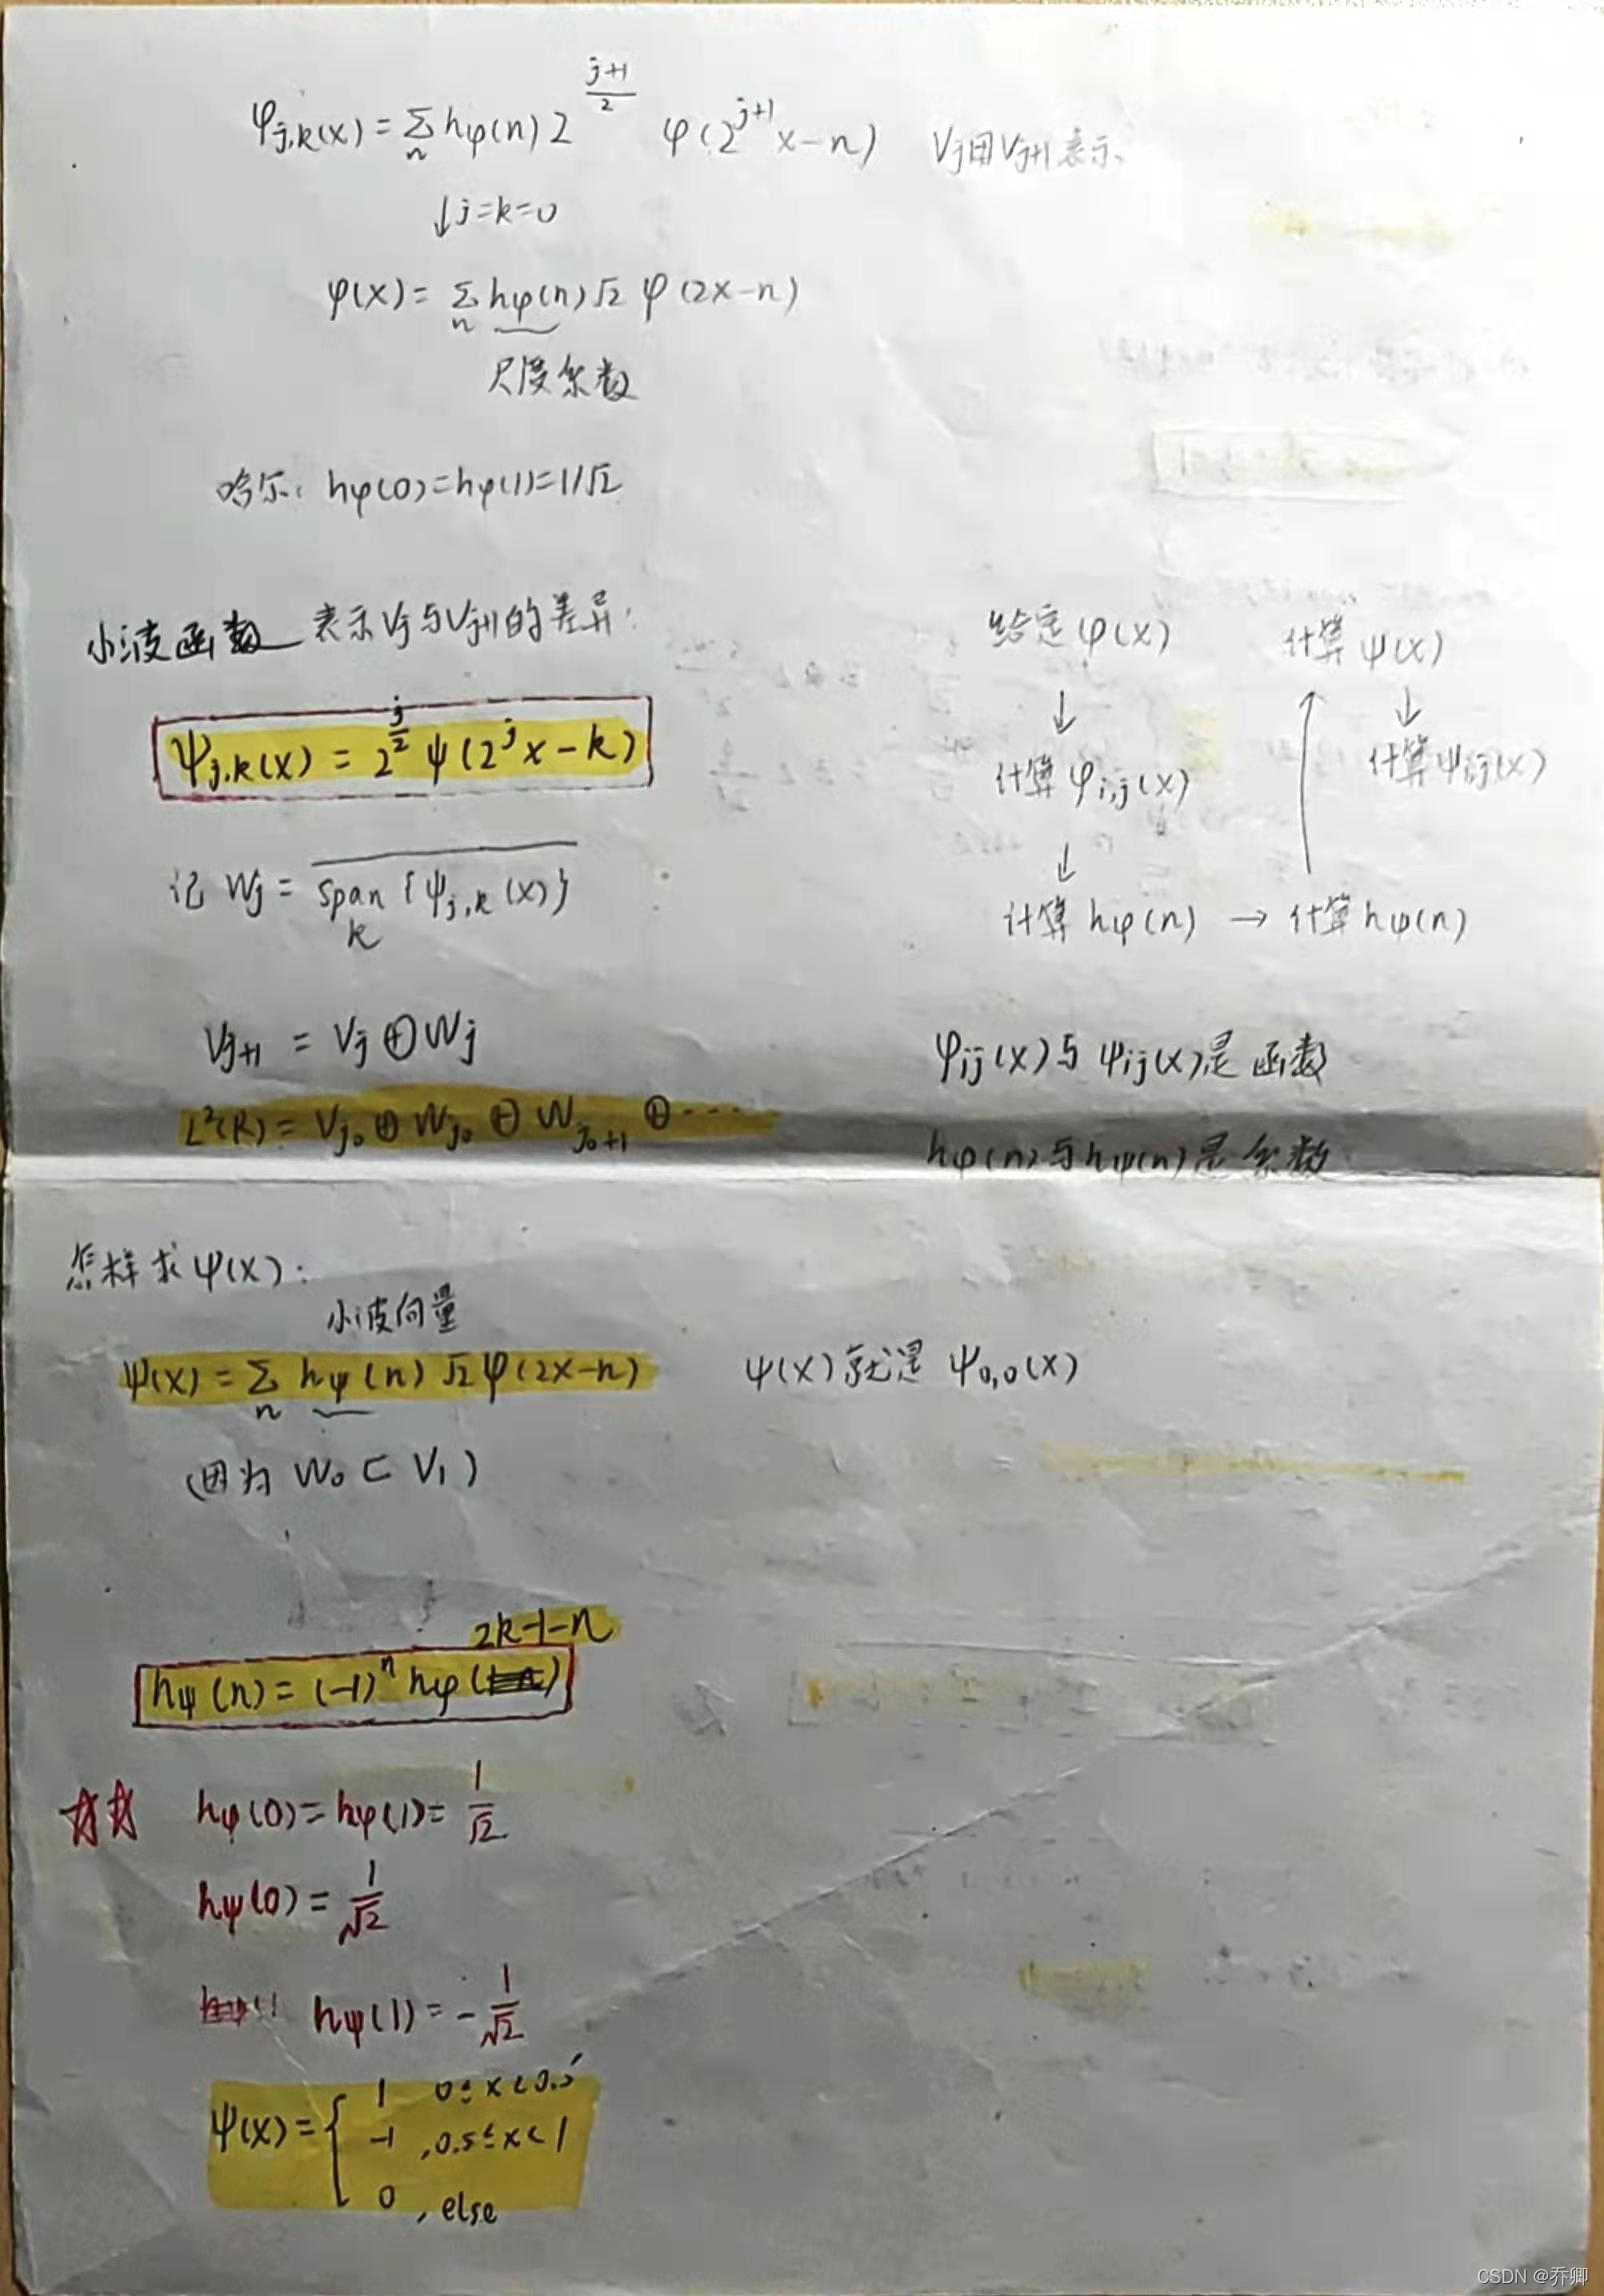 φj,k(x) = Σn hφ(n) 2^((j+1)/2) φ(2^(j+1) x-n) Vj用Vj+1表示、
↓j=k=0
φ(x) = Σn hφ(n) √2 φ(2x-n)
尺度系数
哈尔: hφ(0)=hφ(1)=1/√2
小波函数 表示Vj与Vj+1的差异:
ψj,k(x) = 2^(j/2) ψ(2^j x-k)
记 Wj = span k {ψj,k(x)}
Vj+1 = Vj ⊕ Wj
L²(R) = Vj₀ ⊕ Wj₀ ⊕ Wj₀+1 ⊕ ----
给定 φ(x)
↓
计算 φi,j(x)
↓
计算 hφ(n) → 计算 hψ(n)
↑
计算 ψ(x)
↓
计算 ψij(x)
φij(x)与 ψij(x)是 函数
hφ(n)与hψ(n)是 系数
怎样求 ψ(x):
小波向量
ψ(x) = Σn hψ(n) √2 φ(2x-n) ψ(x)就是 ψ0,0(x)
(因为 W₀ ⊂ V₁)
2k-1-n
hψ(n) = (-1)^n hφ( )
☆☆ hφ(0)=hφ(1)= 1/√2
hψ(0) = 1/√2
hψ(1) = - 1/√2
ψ(x) = { 1 0≤x<0.5
-1 ,0.5≤x<1
0 , else
CSDN @乔卿